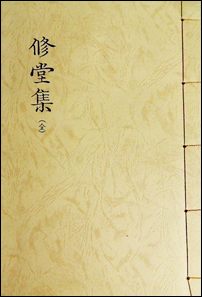 修堂集(全)